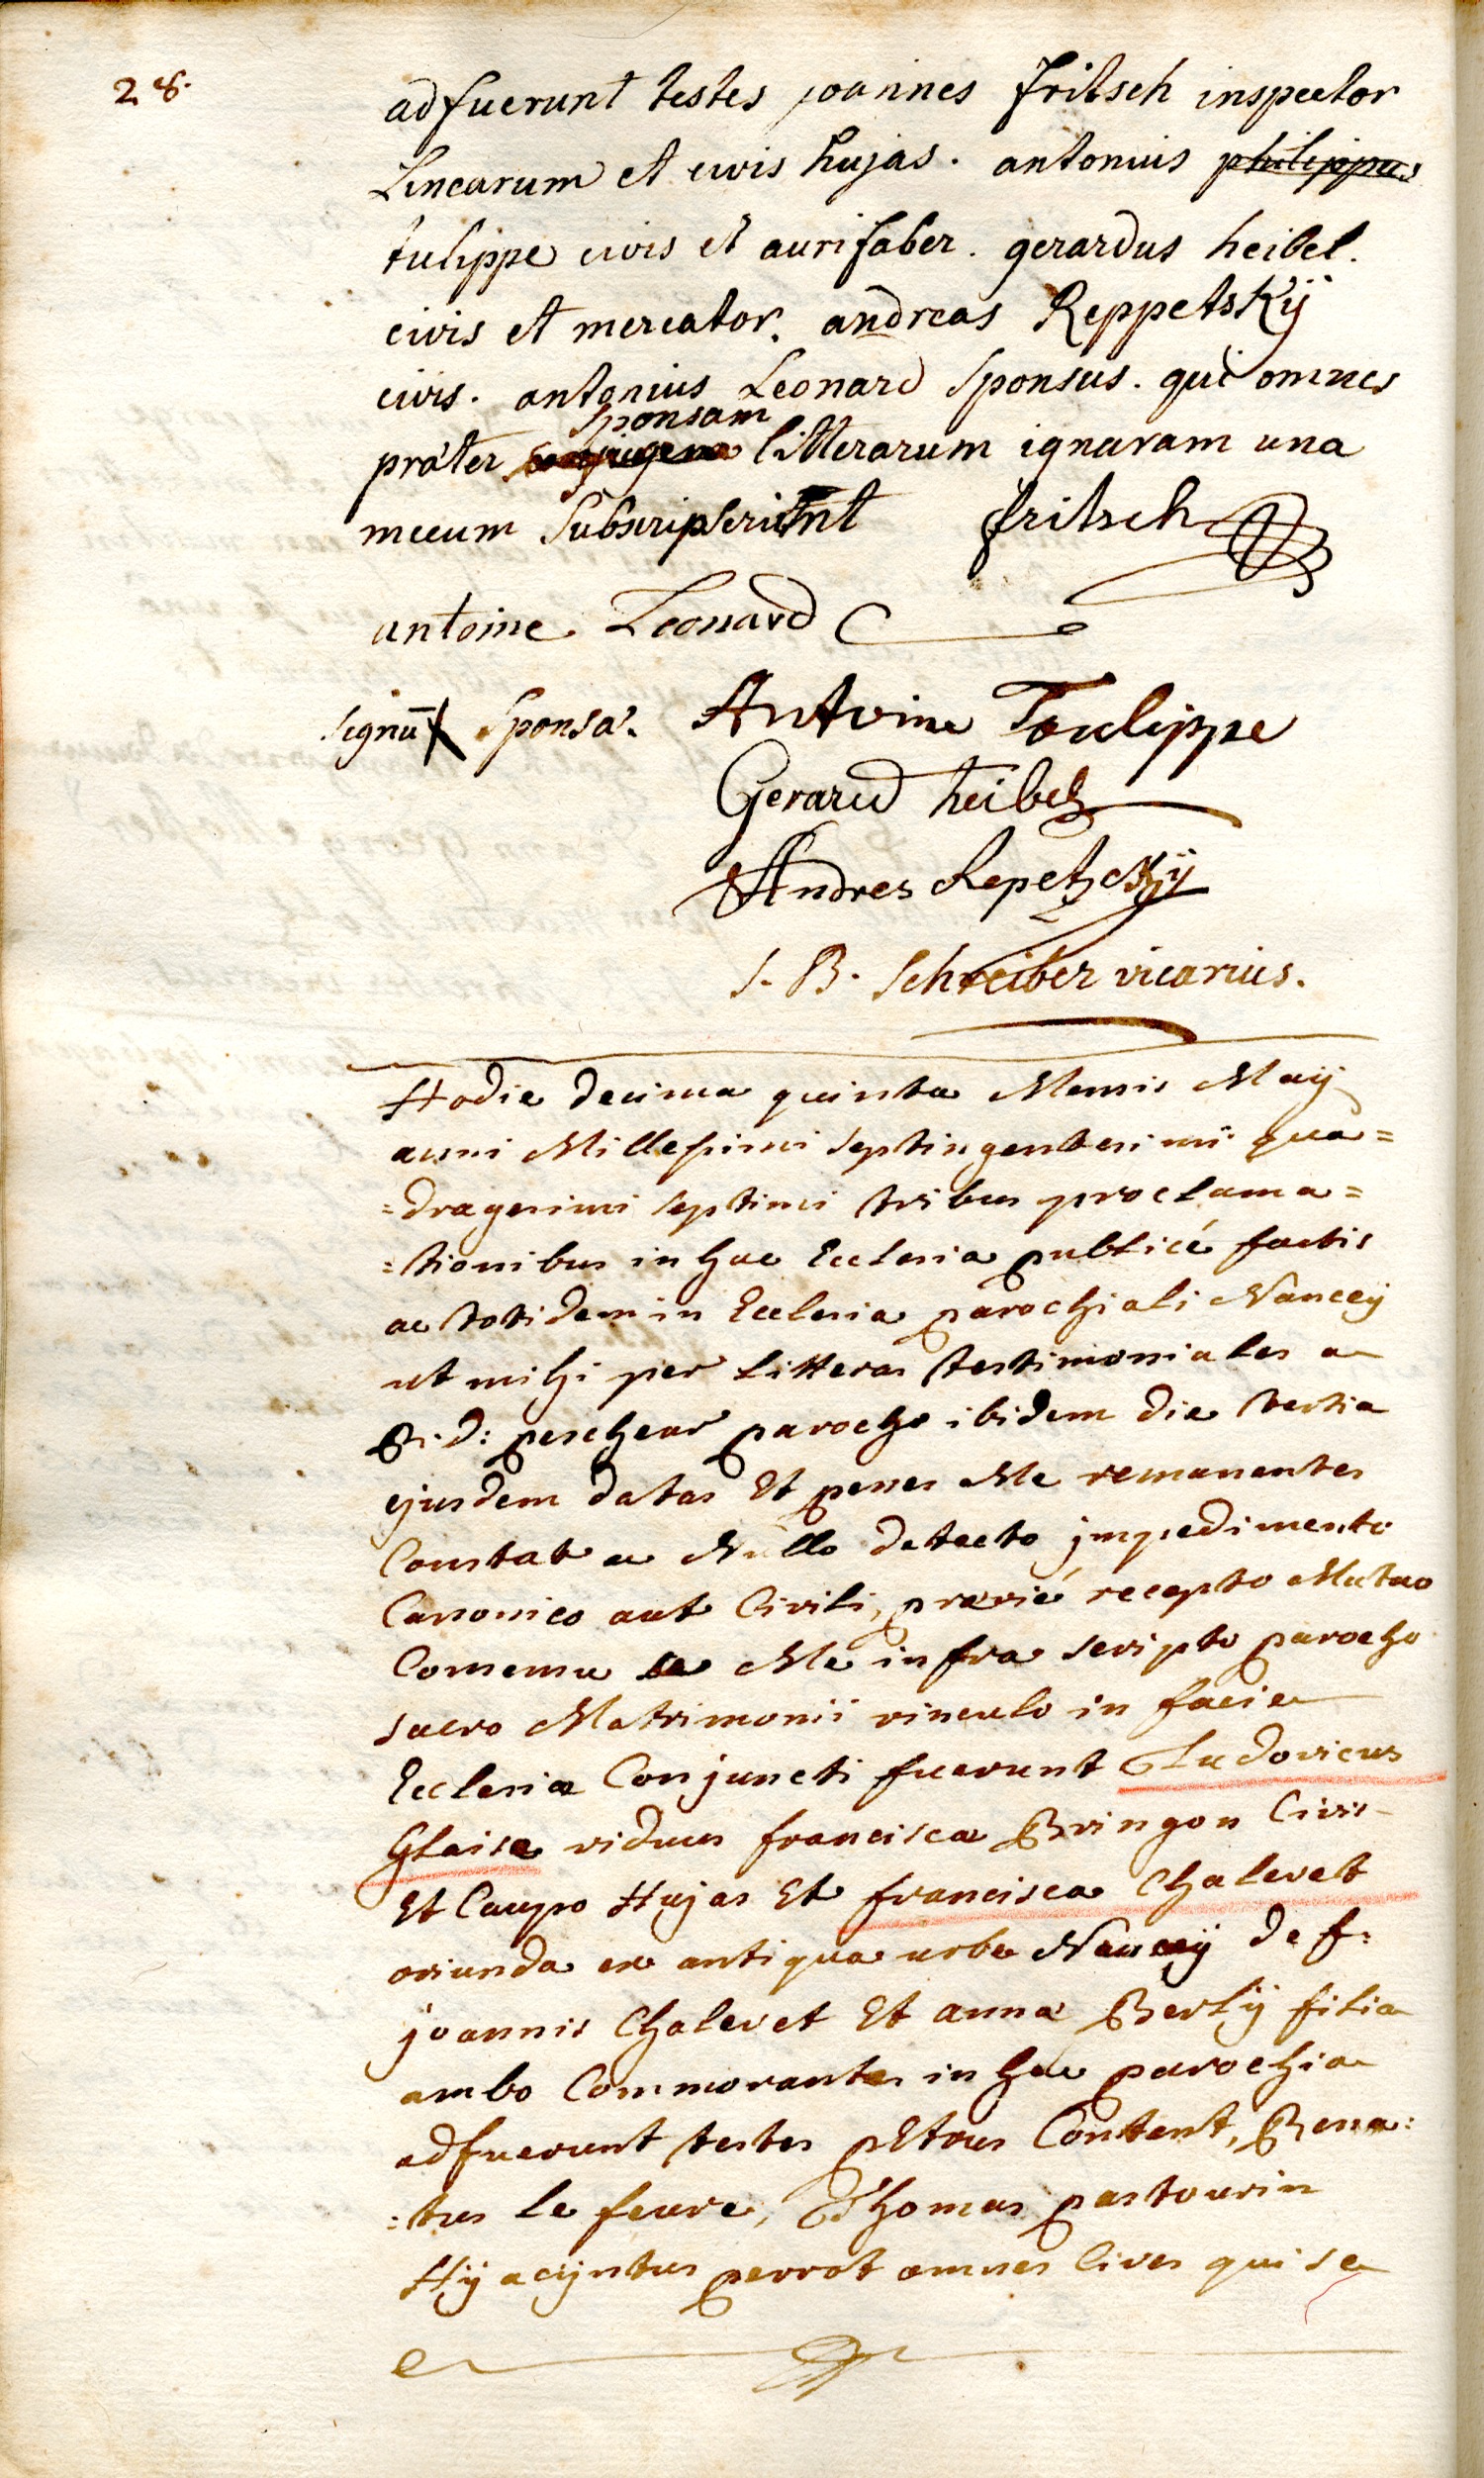 28.
adfuerunt testes joannes fritsch inspector
Linearum et civis hujas. antonius philippus
tulippe civis et aurifaber. gerardus heibel.
civis et mercator. andreas Reppetskÿ
civis. antonius Leonard sponsus. qui omnes
sponsam
præter conjugem litterarum ignaram una
mecum subscripserunt fritsch
antoine Leonard
signū sponsæ. Antoine Toulippe
Gerard heibel
Andres Repetzckÿ
J. B. Schreiber vicarius.
Hodie decima quinta Mensis Maij
anni Millesimi septingentesimi qua=
=dragesimi septimi tribus proclama=
=tionibus in hac Ecclesia publicé factis
ac totidem in Ecclesia parochiali Nanceÿ
ut mihi per litteras testimoniales a
R: d: pescheur parocho ibidem die tertia
ejusdem datas Et penes Me remanentes
Constat ac Nullo detecto jmpedimento
Canonico aut Civili, prævié recepto Mutuo
Consensu a Me infra scripto parocho
sacro Matrimonii vinculo in facie
Ecclesiæ Conjuncti fuerunt Ludovicus
Glaise viduus franciscæ Bringon Civis
Et Caupo Hujas Et francisca Chalevet
oriunda ex antiqua urbe Nanceÿ de f:
joannis Chalevet Et annæ Bertÿ filia
ambo Commorantes in hac parochia
adfuerunt testes petrus Content, Rena:
:tus le feure, Thomas pastourin
Hÿacÿntus perrot omnes Cives qui se